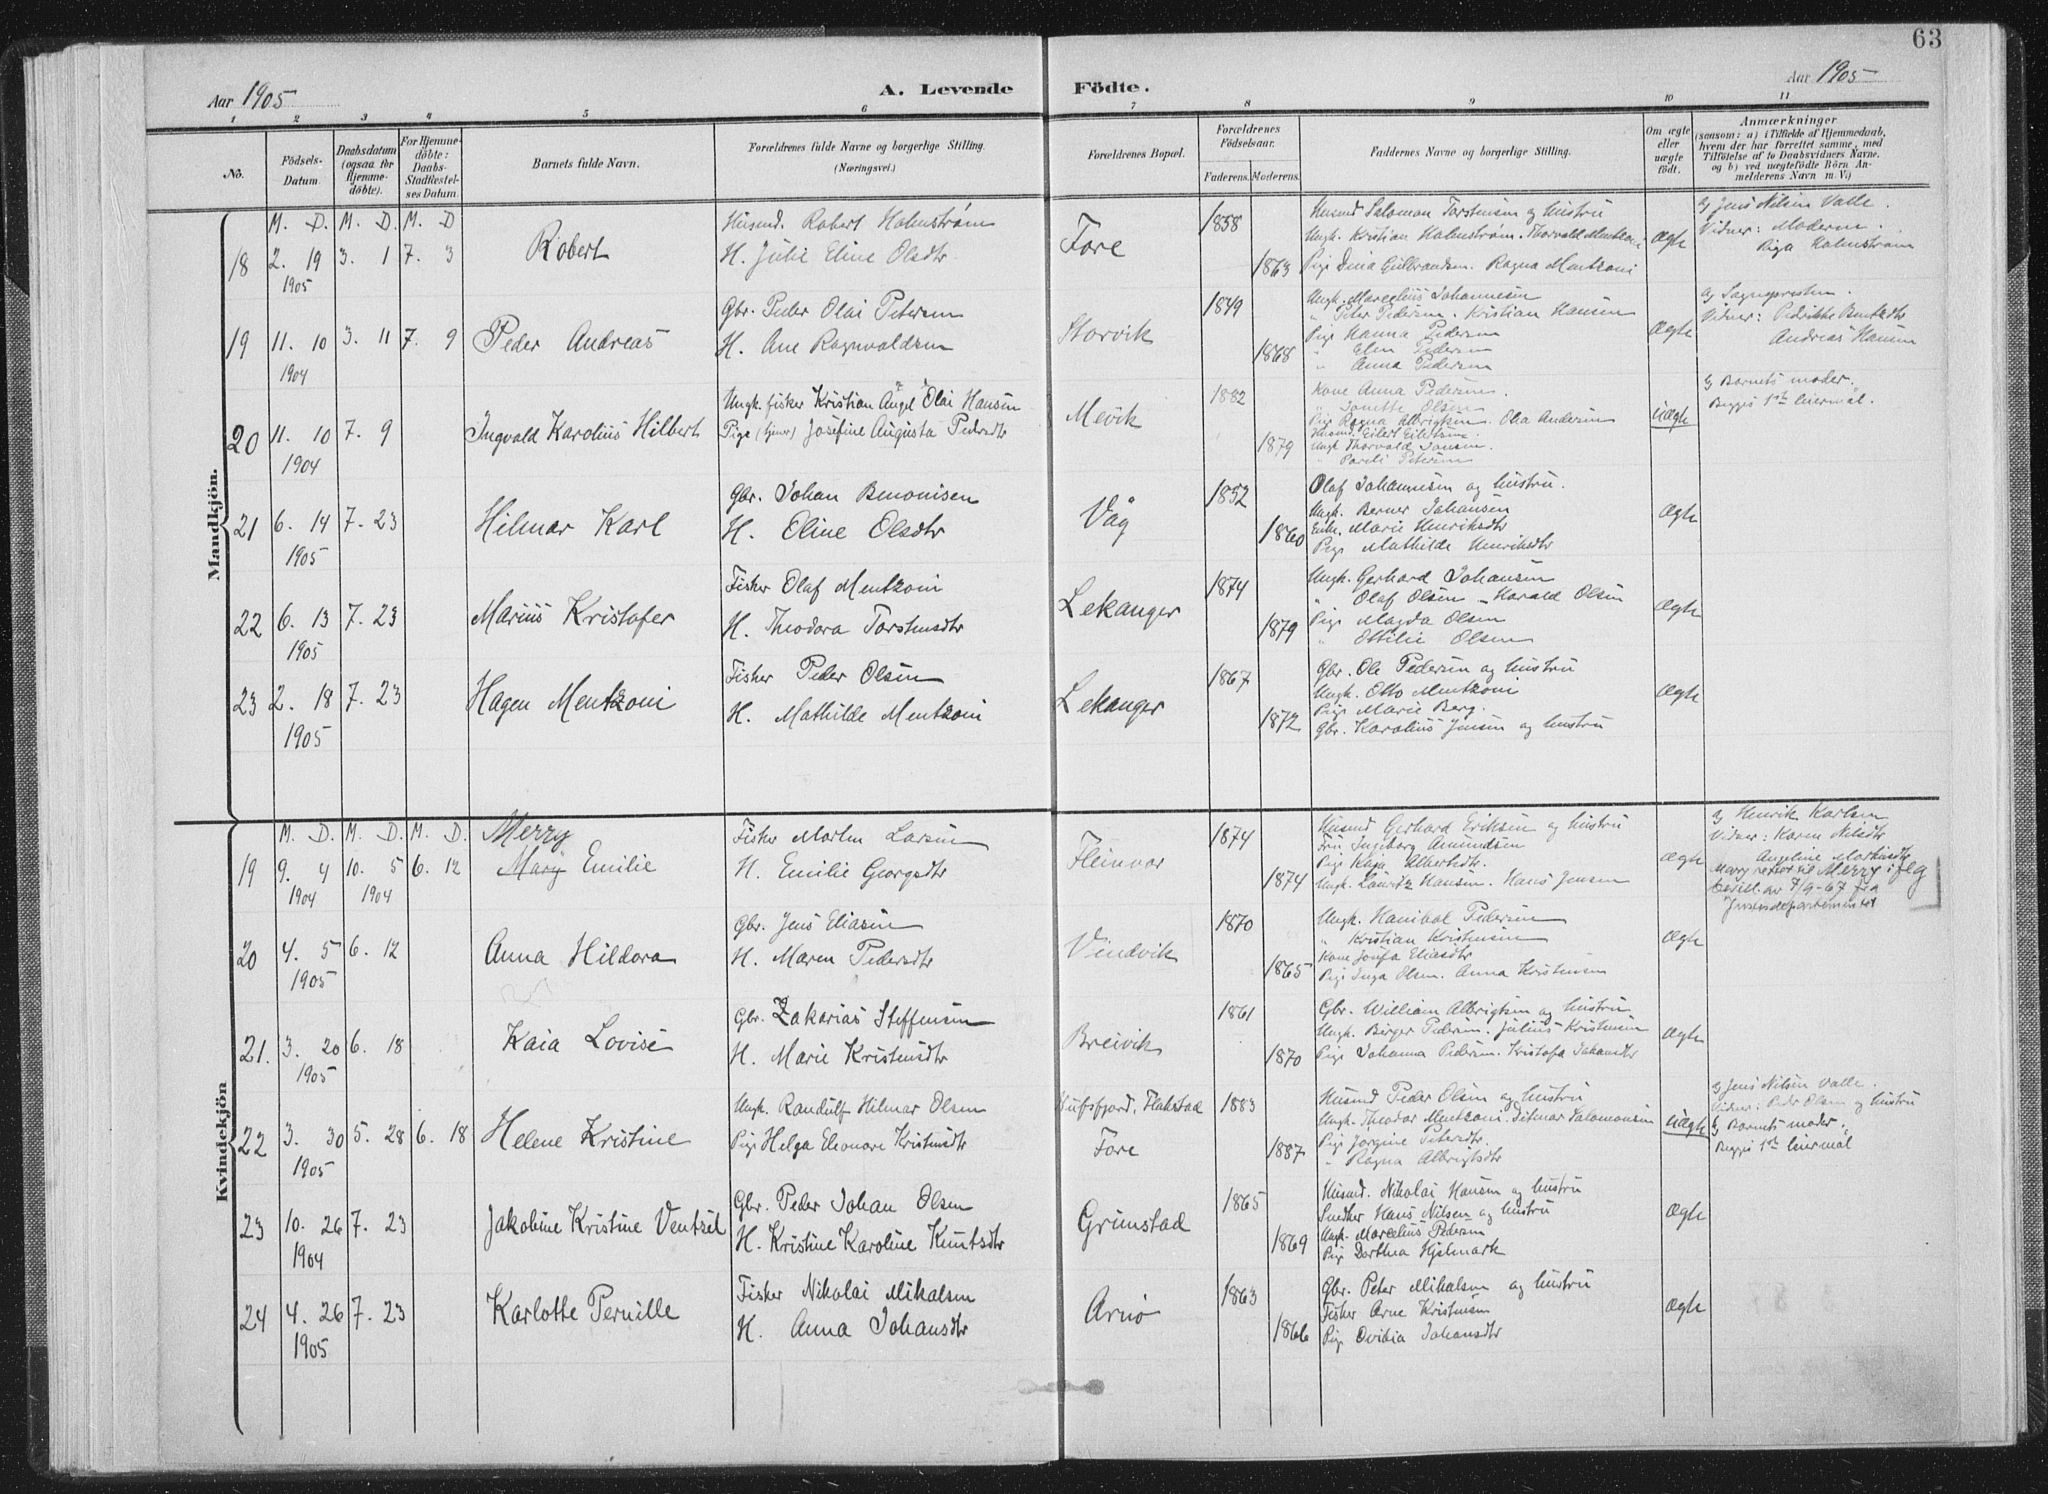 63
Aar 1905
A. Levende Födte.
Aar 1905
1 2 3 4 5 6 7 8 9 10 11
No.
Födsels-Datum.
Daabsdatum (ogsaa for Hjemme-döbte).
For Hjemme-döbte: Daabs-Stadfæstel-ses Datum.
Barnets fulde Navn.
Forældrenes fulde Navne og borgerlige Stilling. (Næringsvei.)
Forældrenes Bopæl.
Forældrenes Födselsaar.
Faderens. Moderens.
Faddernes Navne og borgerlige Stilling.
Om ægte eller uægte födt.
Anmærkninger (saasom: a) i Tilfælde af Hjemmedaab, hvem der har forrettet samme, med Tilföielse af to Daabsvidners Navne, og b) ved uægtefödte Börn Anmelderens Navn m. V.)
Mandkjön.
M. D. M. D. M. D
18 2. 19 1905 3. 1 7. 3
Robert
Husmd. Robert Holmstrøm
H. Julie Eline Olsdtr
Fore
1858 1863
Husmd Salomon Torstensen og hustru
Ungk. Kristian Holmstrøm. Thorvald Mentzoni
Pige Dina Gulbrandsen. Ragna Mentzoni
Ægte
a) Jens Nilsen Valle.
Vidner: Moderen.
Piga Holmstrøm
19 11. 10 1904 3. 11 7. 9
Peder Andreas
Gbr. Peder Olai Petersen
H. Ane Ragnvaldsen
Storvik
1849 1868
Ungk. Marcelius Johannesen
" Peter Pedersen. Kristian Hansen
Pige Hanna Pedersen
" Elen Pedersen
" Anna Pedersen
Ægte
a) Sognepresten.
Vidner: Pedrikke Bentsdtr
Andreas Hansen
20 11. 10 1904 7. 9
Ingvald Karolius Hilbert
Ungk. fisker Kristian Angel Olai Hansen
Pige (tjener) Josefine Augusta Pedersdtr
Mevik
1882 1879
Kone Anna Pedersen.
" Jonette Olsen
Pige Ragna Albrigtsen. Olea Andersen
Husmd. Eilert Eilertsen.
Ungk Thorvald Jansen.
" Pareli Petersen
Uægte
b) Barnets moder.
Begges 1ste leiermål.
21 6. 14 1905 7. 23
Hilmar Karl
Gbr. Johan Benonisen
H. Oline Olsdtr
Våg
1852 1860
Olaf Johannesen og hustru.
Ungk. Berner Johansen
Enke. Marie Henriksdtr
Pige Mathilde Henriksdtr
Ægte
22 6. 13 1905 7. 23
Marius Kristofer
Fisker Olaf Mentzoni
H. Theodora Torstensdtr
Lekanger
1874 1879
Ungk. Gerhard Johansen
" Olaf Olsen - Harald Olsen
Pige Magda Olsen
" Ottilie Olsen
Ægte
23 2. 18 1905 7. 23
Hagen Mentzoni
Fisker Peder Olsen
H. Mathilde Mentzoni
Lekanger
1867 1872
Gbr. Ole Pedersen og hustru
Ungk. Otto Mentzoni
Pige Marie Berg.
Gbr. Karolius Jensen og hustru
Ægte
Kvindekjön
M. D. M. D. M. D.
19 9. 4 1904 10. 5 1904 6. 12
Merry
Mary Emilie
Fisker Morten Larsen
H. Emilie Georgsdtr
Fleinvær
1874 1874
Husmd Gerhard Eriksen og hustru
Fru Ingeborg Amundsen
Pige Kaja Albertsdtr.
Ungk. Lauritz Hansen. Hans Jensen
Ægte
a) Henrik Karlsen
Vidner: Karen Nilsdtr
Angeline Mortensdtr
Mary rettet til Merry iflg
bevill. av 7/9-67 fra
Justisdepartementet
20 4. 5 1905 6. 12
Anna Hildora
Gbr. Jens Eliasen
H. Maren Pedersdtr
Vindvik
1870 1865
Ungk. Hanibal Pedersen
" Kristian Kristensen
Kone Josefa Eliasdtr
Pige Inga Olsen. Anna Kristensen
Ægte
21. 3. 20 1905 6. 18
Kaia Lovise
Gbr. Zakarias Steffensen
H. Marie Kristensdtr
Breivik
1861 1870
Gbr. William Albrigtsen og hustru
Ungk. Birger Pedersen. Julius Kristensen
Pige Johanna Pedersen. Kristofa Johansdtr
Ægte
22 3. 30 1905 5. 28 6. 18
Helene Kristine
Ungk. Randulf Hilmar Olsen
Pige Helga Eleonore Kristensdtr
Nufsfjord, Flakstad
Fore
1883 1887
Husmd Peder Olsen og hustru
Ungk. Theodor Mentzoni. Ditmar Salomonsen
Pige Jorgine Petersdtr.
" Ragna Albrigtsdtr
Uægte
a) Jens Nilsen Valle.
Vidner: Peder Olsen og hustru
b) Barnets moder.
Begges 1ste leiermål
23 10. 26 1904 7. 23
Jakobine Kristine Ventzel
Gbr. Peder Johan Olsen
H. Kristine Karoline Knutsdtr
Grimstad
1865 1869
Husmd. Nikolai Hansen og hustru
Snedker Hans Nilsen og hustru
Ungk. Marcelius Pedersen
Pige Dorthea Hjelmark
Ægte
24 4. 26 1905 7. 23
Karlotte Pernille
Fisker Nikolai Mikalsen
H. Anna Johansdtr
Arnø
1863 1866
Gbr. Peter Mikalsen og hustru
Fisker Arne Kristensen
Pige Ovidia Johansdtr
Ægte